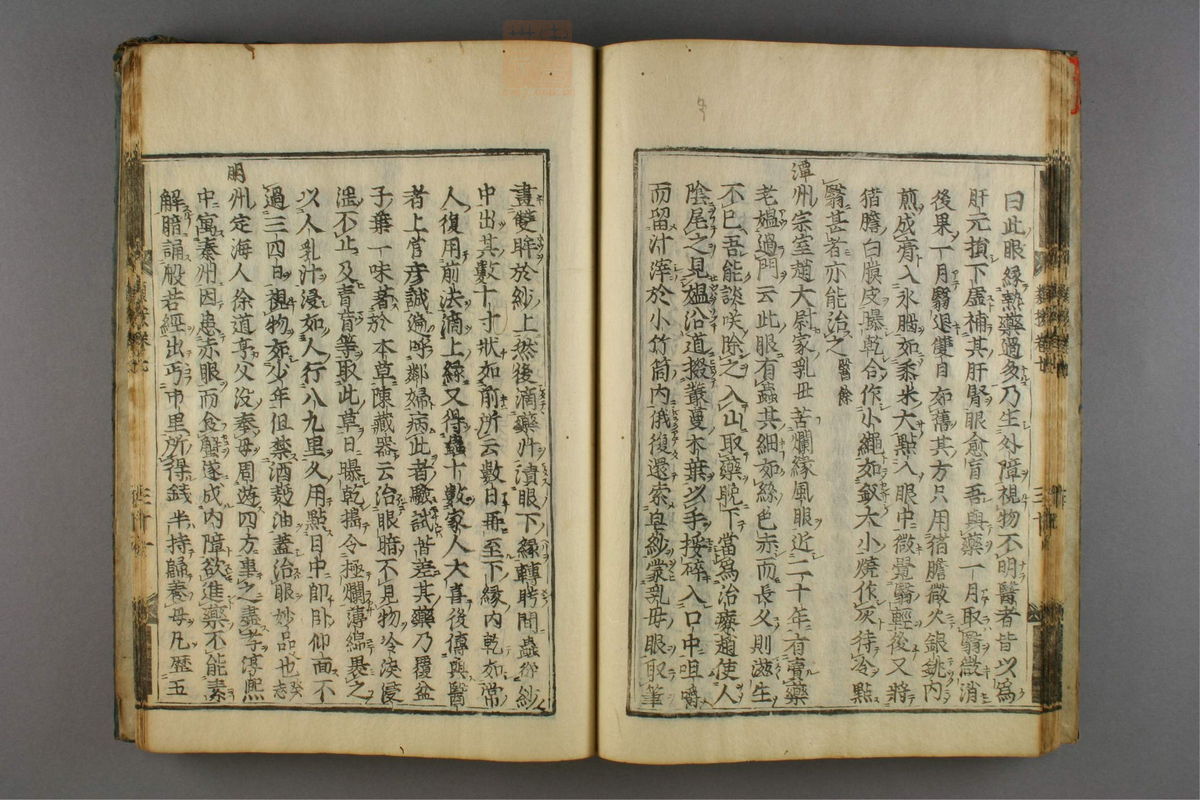 曰此眼緣熱藥過多乃生外障視物不明醫者皆以為
肝元損下虛補其肝腎眼愈盲吾與藥一月取翳微消
後果一月翳退雙目如舊其方只用猪膽微火銀銚內
煎成膏入氷腦如黍米大點入眼中微覺翳輕後又將
猪膽白膜皮曝乾合作小繩如釵大小燒作灰待冷點
翳甚者亦能治之 醫餘
潭州宗室趙大尉家乳母苦爛緣風眼近二十年有賣藥
老媼過門云此眼有蟲其細如絲色赤而長久則滋生
不已吾能談咲除之入山取藥晩下當為治療趙使人
陰尾之見媼沿道掇叢蔓木葉以手挼碎入口中咀嚼
而留汁滓於小竹筒內俄復還索皂紗蒙乳母眼取筆
畫雙眸於紗上然後滴藥汁漬眼下緣轉眄間蟲從紗
中出其數十寸狀如前所云數日再至下緣內乾如常
人復用前法滴上緣又得蟲十數家人大喜後傳與醫
者上官彥誠遍呼鄰婦病此者驗試皆差其藥乃覆盆
子葉一味著於本草陳藏器云治眼暗不見物冷淚浸
溼不止及青盲等取此草日曝乾搗令極爛薄綿裹之
以人乳汁浸如人行八九里久用點目中即臥仰面不
過三四日視物如少年但禁酒麪油蓋治眼妙品也 癸志
明州定海人徐道亨父沒奉母周遊四方事之盡孝淳熙
中寓秦州因患赤眼而食蟹遂成內障欲進藥不能素
解暗誦般若經出丐市里所得錢半持歸養母凡歷五